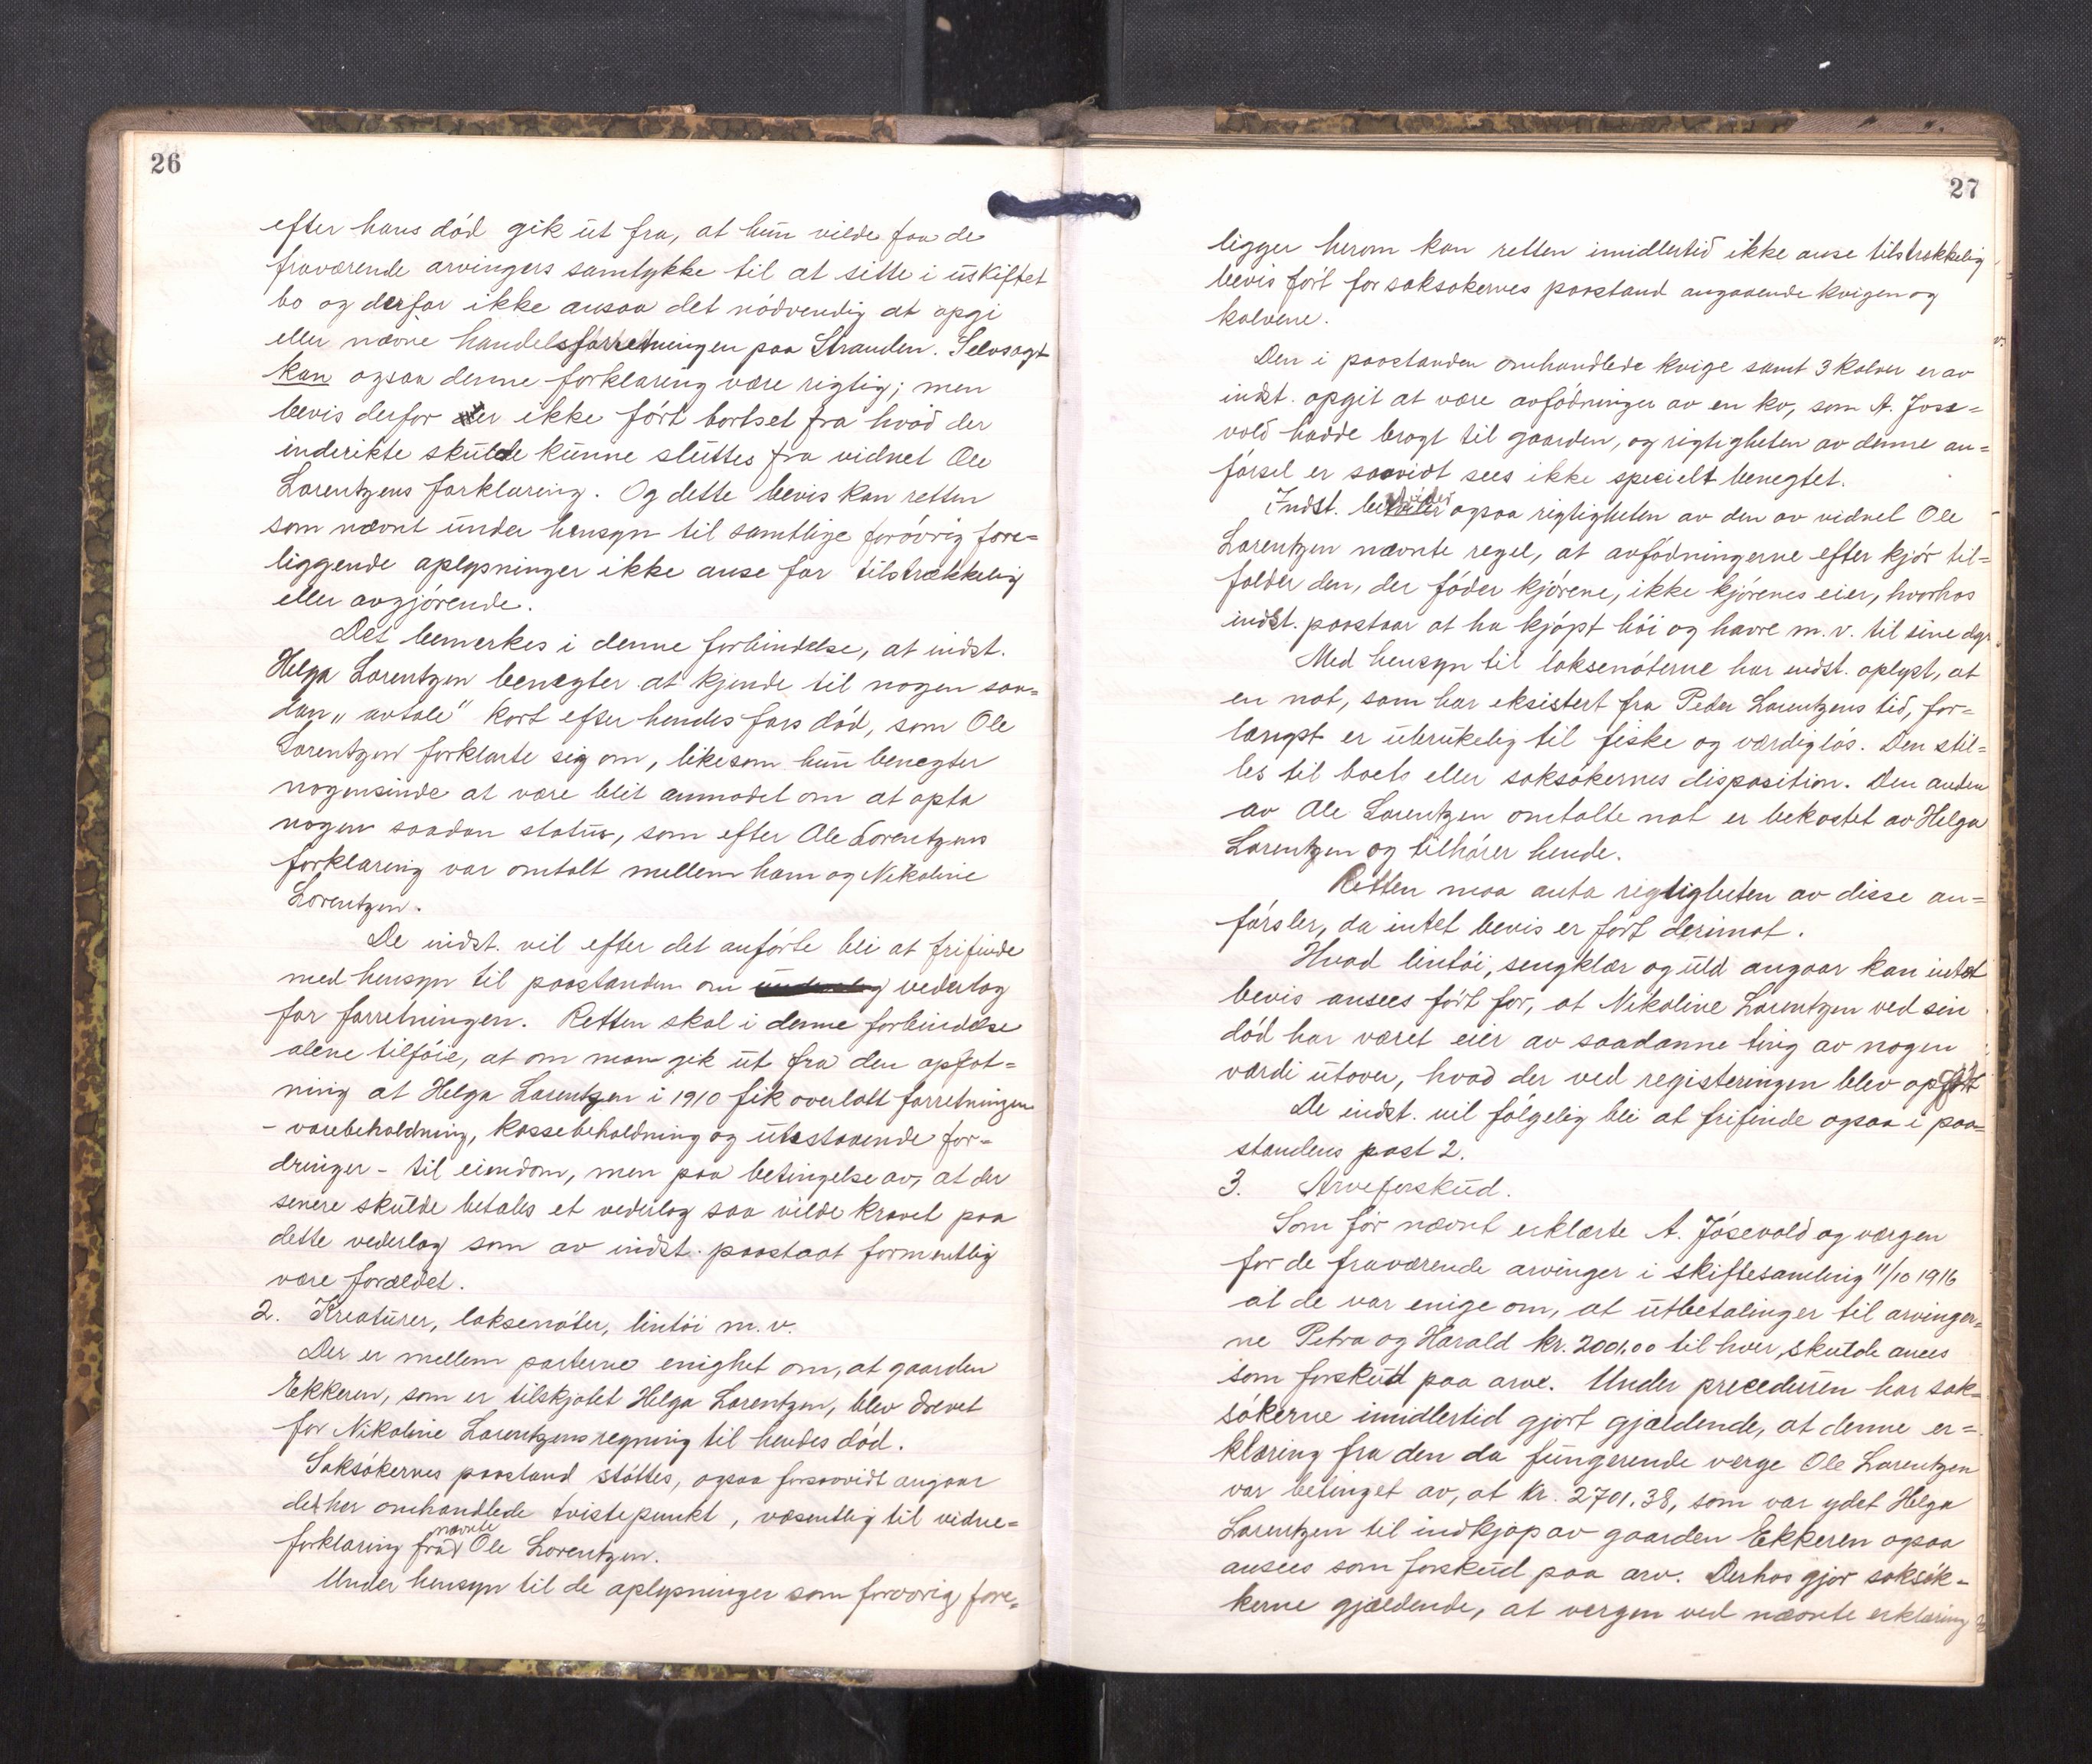 26
efter hans död gik ut fra, at hun vilde faa de
fraværende arvingers samtykke til at sitte i uskiftet
bo og derfor ikke ansaa det nödvendig at opgi
eller nævne handelsforretningen paa Stranden. Selvsagt
kan ogsaa denne forklaring være rigtig; men
bevis derfor er ikke fört bortset fra hvad der
inderikte skulde kunne sluttes fra vidnet Ole
Lorentzens forklaring. Og dette bevis kan retten
som nævnt under hensyn til samtlige forövrig fore=
liggende oplysninger ikke anse for tilstrækkelig
eller avgjörende.
Det bemerkes i denne forbindelse, at indst.
Helga Lorentzen benegter at kjende til nogen saa=
dan „avtale" kort efter hendes fars död, som Ole
Lorentzen forklarte sig om, likesom hun benegter
nogensinde at være blit anmodet om at opta
nogen saadan status, som efter Ole Lorentzens
forklaring var omtalt mellem ham og Nikoline
Lorentzen.
De indst. vil efter det anförte bli at frifinde
med hensyn til paastanden om vederlag
for forretningen. Retten skal i denne forbindelse
alene tilföie, at om man gik ut fra den opfat=
ning at Helga Lorentzen i 1910 fik overlatt forretningen
- varebeholdning, kassebeholdning og utestaaende for=
dringer - til eiendom, men paa betingelse av, at der
senere skulde betales et vederlag saa vilde kravet paa
dette vederlag som av indst. paastaat formentlig
være forældet.
2. Kreaturer, laksenöter, lintöi m.v.
Der er mellem parterne enighet om, at gaarden
Ekkeren, som er tilskjötet Helga Lorentzen, blev drevet
for Nikoline Lorentzens regning til hendes död.
Saksökernes paastand stöttes, ogsaa forsaavidt angaar
det her omhandlede tvistepunkt, væsentlig til vidne=
forklaring fra nævnte Ole Lorentzen.
Under hensyn til de oplysninger som forövrig fore=
27
ligger herom kan retten imidlertid ikke anse tilstrekkelig
bevis fört for saksökernes paastand angaaende kvigen og
kalvene.
Den i paastanden omhandlede kvige samt 3 kalver er av
indst. opgit at være avfödninger av en ko, som A. Jöse=
vold hadde bragt til gaarden, og rigtigheten av denne an=
försel er saavidt sees ikke specielt benegtet.
Indst. bestrider ogsaa rigtigheten av den av vidnet Ole
Lorentzen nævnte regel, at avfödningerne efter kjör til=
falder den, der föder kjörene, ikke kjörenes eier, hvorhos
indst. paastaar at ha kjöpt höi og havre m.v. til sine dyr.
Med hensyn til laksenöterne har indst. oplyst, at
en not, som har eksistert fra Peder Lorentzens tid, for=
længst er ubrukelig til fiske og værdiglös. Den stil=
les til boets eller saksökernes disposition. Den anden
av Ole Lorentzen omtalte not er bekostet av Helga
Lorentzen og tilhörer hende.
Retten maa anta rigtigheten av disse an=
förster, da intet bevis er fört derimot.
Hvad lintöi, sengklær og uld angaar kan intet
bevis ansees fört for, at Nikoline Lorentzen ved sin
död har været eier av saadanne ting av nogen
værdi utover, hvad der ved registeringen blev opfört
De indst. vil fölgelig bli at frifinde ogsaa i paa=
standens post 2.
3. Arveforskud.
Som för nævnt erklærte A. Jösevold og værgen
for de fraværende arvinger i skiftesamling 11/10 1916
at de var enige om, at utbetalinger til arvinger=
ne Petra og Harald kr. 2001.00 til hver, skulde ansees
som forskud paa arve. Under proceduren har sak=
sökerne imidlertid gjort gjældende, at denne er=
klæring fra den da fungerende værge Ole Lorentzen
var betinget av, at kr. 2701.38, som var ydet Helga
Lorentzen til indkjöp av gaarden Ekkeren ogsaa
ansees som forskud paa arv. Derhos gjör saksök=
kerne gjældende, at vergen ved nævnte erklæring